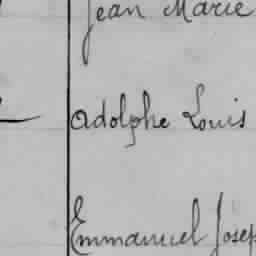 Jean Marie
Adolphe Louis
Emmanuel Josep